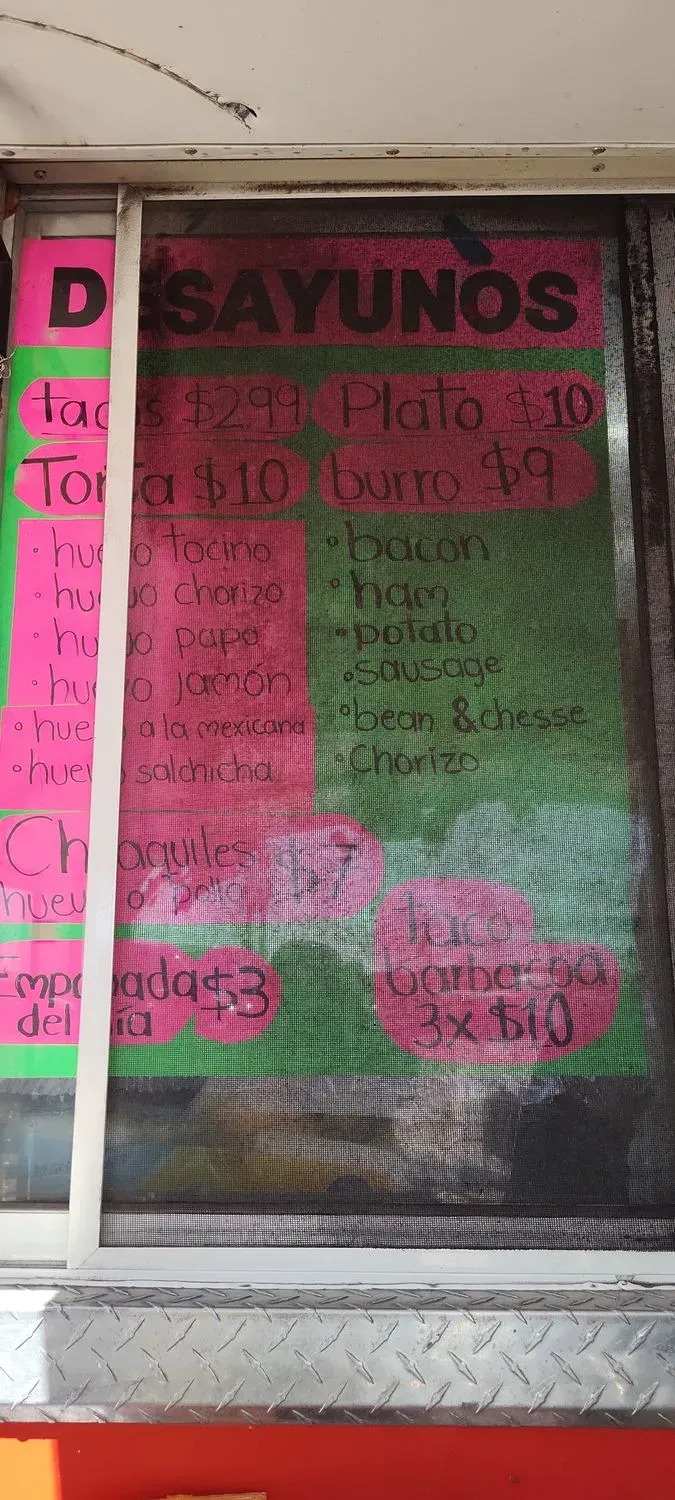 DESAYUNOS
tacos $2.99
Torta $10
• huevo tocino
• huevo chorizo
• huevo papa
• huevo jamón
• huevo a la mexicana
• huevo salchicha
Chilaquiles $7
huevo o pollo
Empanada $3
del día
Plato $10
burro $9
• bacon
• ham
• potato
• sausage
• bean & chesse
• Chorizo
taco
barbacoa
3x $10